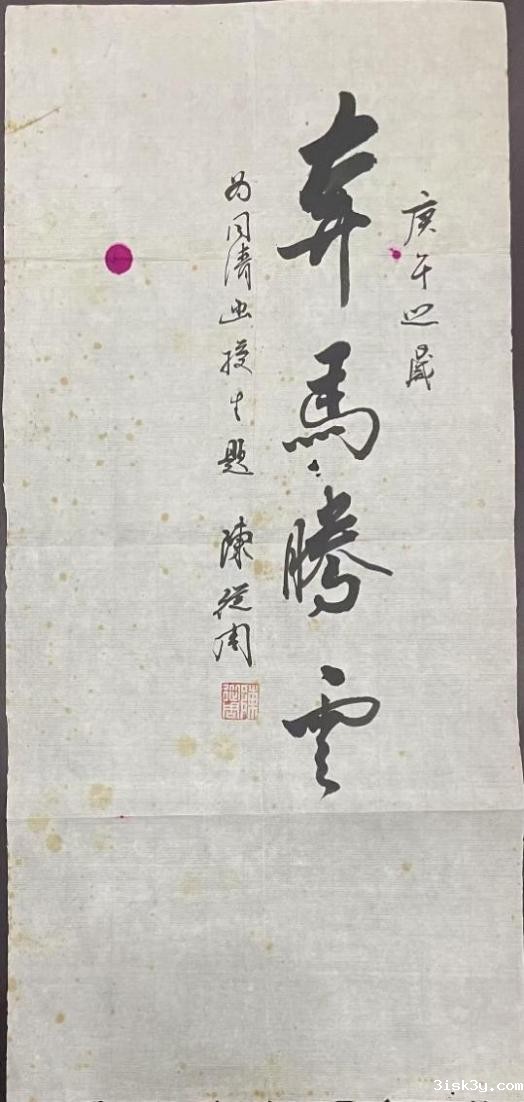 庚午之歲
奔馬騰雲
为同濟函授生題 陳從周
陳從周
3isk3y.com